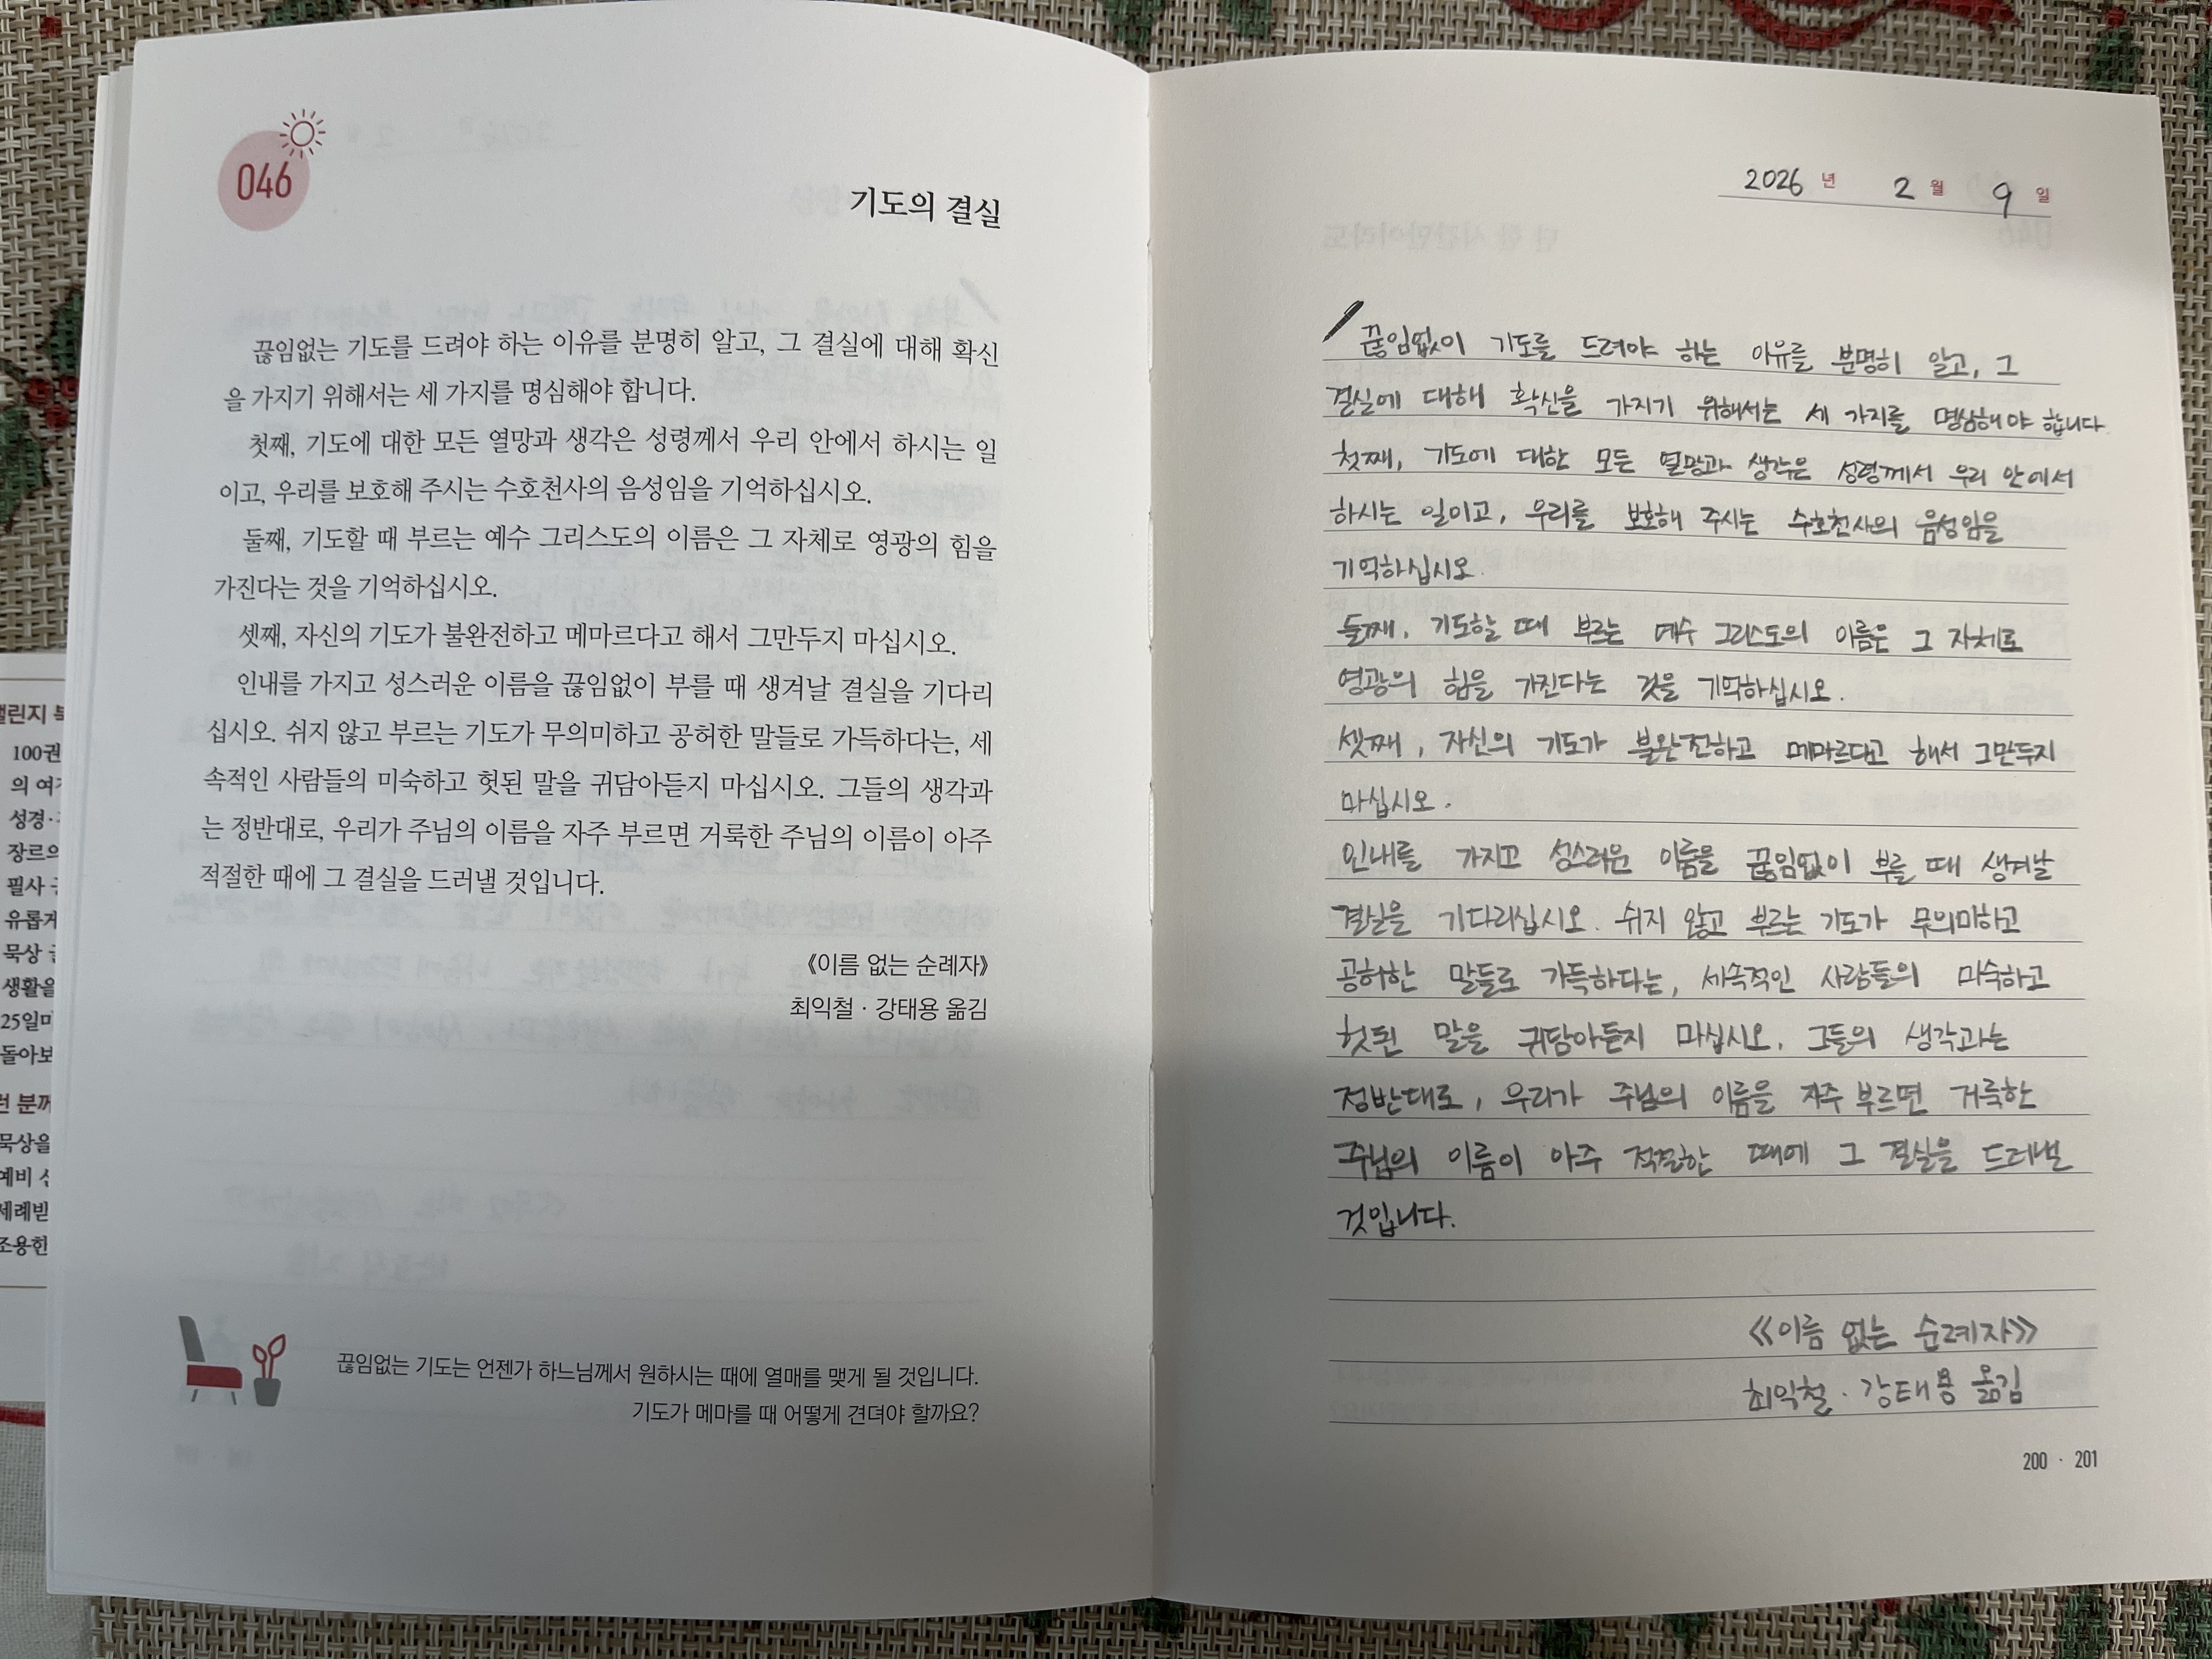 046
기도의 결실
끊임없는 기도를 드려야 하는 이유를 분명히 알고, 그 결실에 대해 확신
을 가지기 위해서는 세 가지를 명심해야 합니다.
첫째, 기도에 대한 모든 열망과 생각은 성령께서 우리 안에서 하시는 일
이고, 우리를 보호해 주시는 수호천사의 음성임을 기억하십시오.
둘째, 기도할 때 부르는 예수 그리스도의 이름은 그 자체로 영광의 힘을
가진다는 것을 기억하십시오.
셋째, 자신의 기도가 불완전하고 메마르다고 해서 그만두지 마십시오.
인내를 가지고 성스러운 이름을 끊임없이 부를 때 생겨날 결실을 기다리
십시오. 쉬지 않고 부르는 기도가 무의미하고 공허한 말들로 가득하다는, 세
속적인 사람들의 미숙하고 헛된 말을 귀담아듣지 마십시오. 그들의 생각과
는 정반대로, 우리가 주님의 이름을 자주 부르면 거룩한 주님의 이름이 아주
적절한 때에 그 결실을 드러낼 것입니다.
《이름 없는 순례자》
최익철 · 강태용 옮김
끊임없는 기도는 언젠가 하느님께서 원하시는 때에 열매를 맺게 될 것입니다.
기도가 메마를 때 어떻게 견뎌야 할까요?
2026 년 2 월 9 일
끊임없이 기도를 드려야 하는 이유를 분명히 알고, 그
결실에 대해 확신을 가지기 위해서는 세 가지를 명심해야 합니다.
첫째, 기도에 대한 모든 열망과 생각은 성령께서 우리 안에서
하시는 일이고, 우리를 보호해 주시는 수호천사의 음성임을
기억하십시오.
둘째, 기도할 때 부르는 예수 그리스도의 이름은 그 자체로
영광의 힘을 가진다는 것을 기억하십시오.
셋째, 자신의 기도가 불완전하고 메마르다고 해서 그만두지
마십시오.
인내를 가지고 성스러운 이름을 끊임없이 부를 때 생겨날
결실을 기다리십시오. 쉬지 않고 부르는 기도가 무의미하고
공허한 말들로 가득하다는, 세속적인 사람들의 미숙하고
헛된 말을 귀담아듣지 마십시오. 그들의 생각과는
정반대로, 우리가 주님의 이름을 자주 부르면 거룩한
주님의 이름이 아주 적절한 때에 그 결실을 드러낼
것입니다.
《이름 없는 순례자》
최익철 · 강태용 옮김
200 · 201
100권
성경·
장르의
필사
유롭게
묵상
생활을
25일마
돌아보
묵상을
예비
세례받
조용한